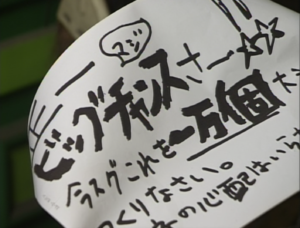 マシ
ービッグチャンスさー☆☆
今スグこれを一万個
くりなさい。
の心配はいら